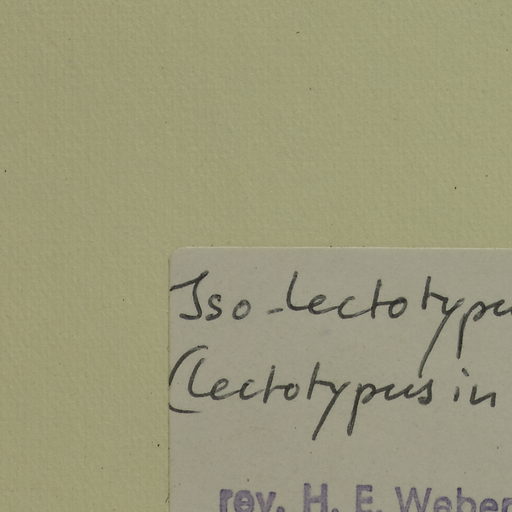 Iso-lectotypu
(lectotypus in
rev. H. E. Weber